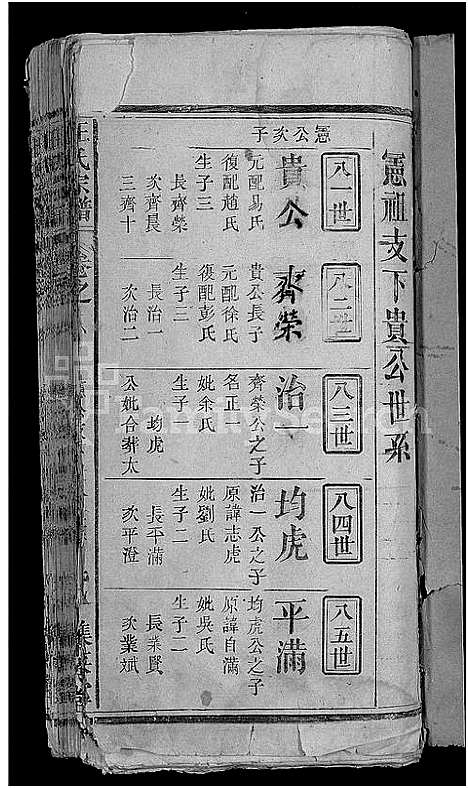 憲祖支下貴公世系
八一世
憲公次子
貴公
元配易氏
復配趙氏
生子三
長齊榮
次齊晨
三齊十
八二世
齊榮
貴公長子
元配徐氏
復配彭氏
生子三
長治一
次治二
八三世
治一
齊榮公之子
名正一
妣余氏
生子
均虎
公妣合葬太
八四世
均虎
治一公之子
原諱志虎
妣劉氏
生子二
長平滿
次平澄
八五世
平滿
均虎公之子
原諱自滿
妣吳氏
生子二
長業賢
次業斌
氏宗譜